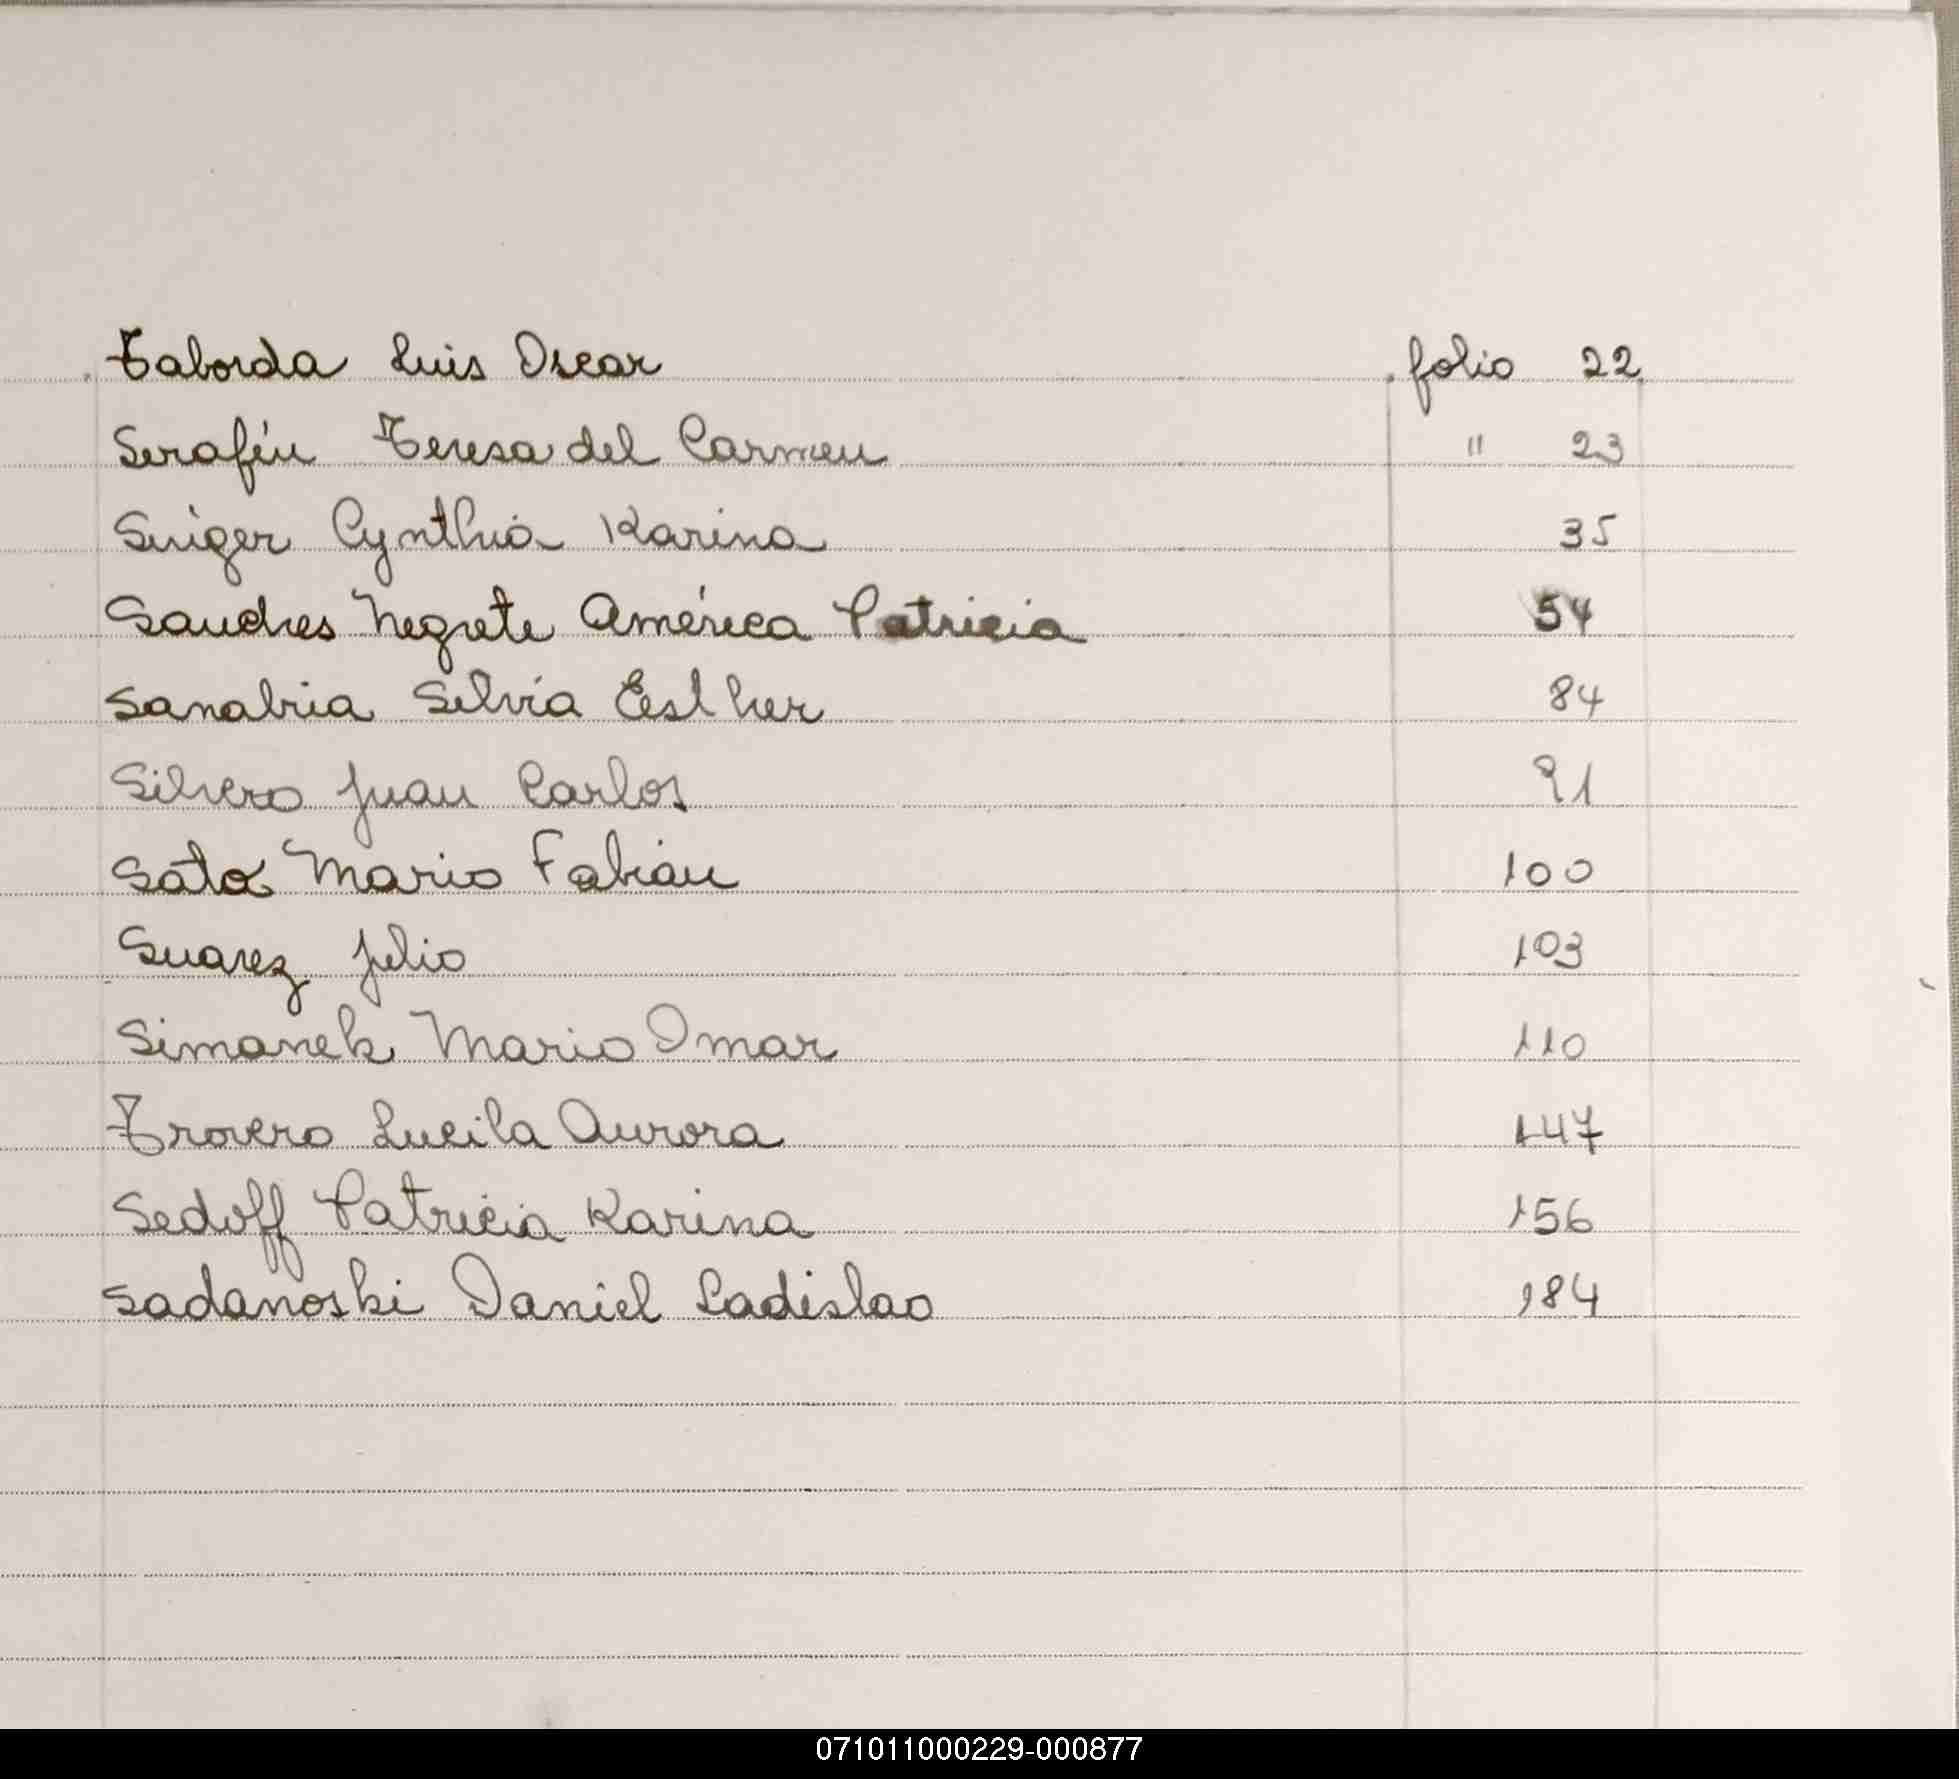 Taborda Luis Oscar folio 22
Serafín Teresa del Carmen " 23
Singer Cynthia Karina 35
Sanches Negrete América Patricia 54
Sanabria Silvia Esther 84
Silvero Juan Carlos 91
Sato Mario Fabián 100
Suarez Julio 103
Simanek Mario Omar 110
Trovero Lucila Aurora 147
Sedoff Patricia Karina 156
Sadanoski Daniel Ladislao 184
071011000229-000877